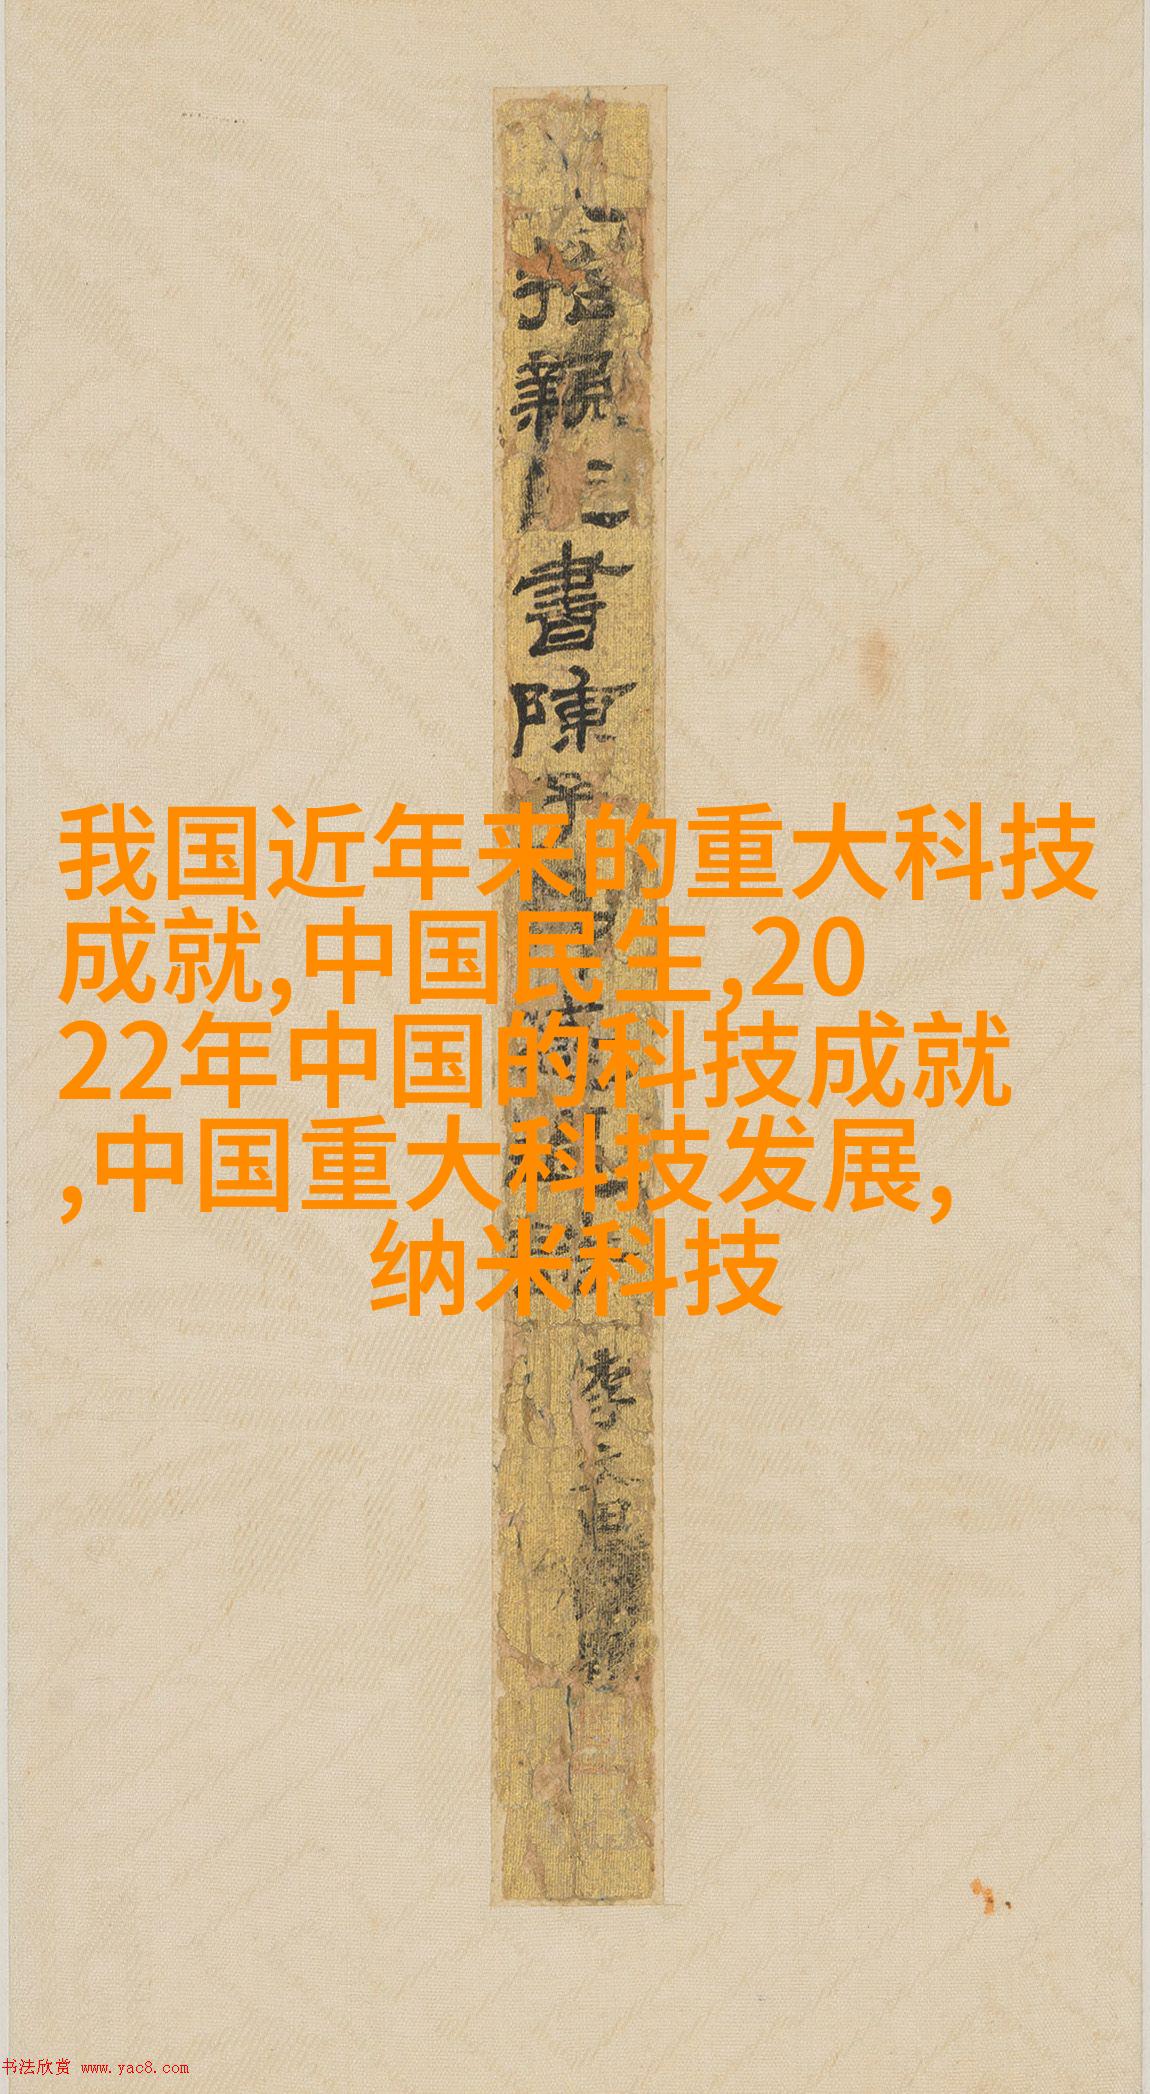 書陳
李文田
我国近年来的重大科技
成就,中国民生,20
22年中国的科技成就
,中国重大科技发展,
纳米科技
书法欣赏 www.yac8.com